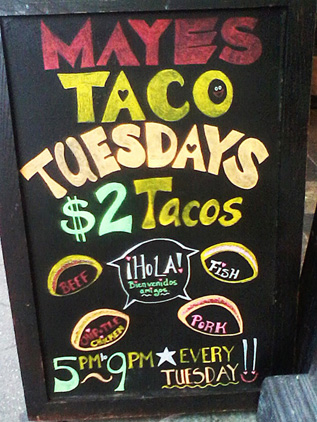 MAYES
TACO
TUESDAYS
$2 Tacos
¡HOLA!
Bienvenidos
amigos
BEEF
FISH
CHICKEN
PORK
5PM to 9PM ★ EVERY
TUESDAY!!